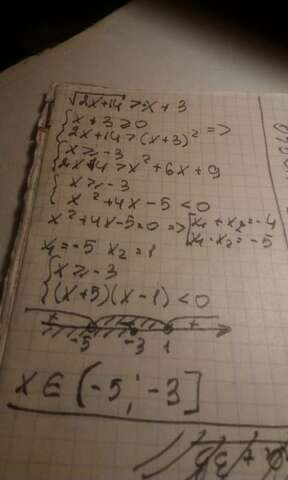 √2x+14 > x + 3
{ x + 3 ≥ 0
2x+14 > (x+3)² =>
{ x ≥ -3
2x+14 > x² + 6x + 9
{ x ≥ -3
x² + 4x - 5 < 0
x² + 4x - 5 = 0 => [ x₁ + x₂ = -4
x₁ · x₂ = -5
x₁ = -5 x₂ = 1
{ x ≥ -3
(x+5)(x-1) < 0
+ - +
-5 -3 1
x ∈ (-5; -3]